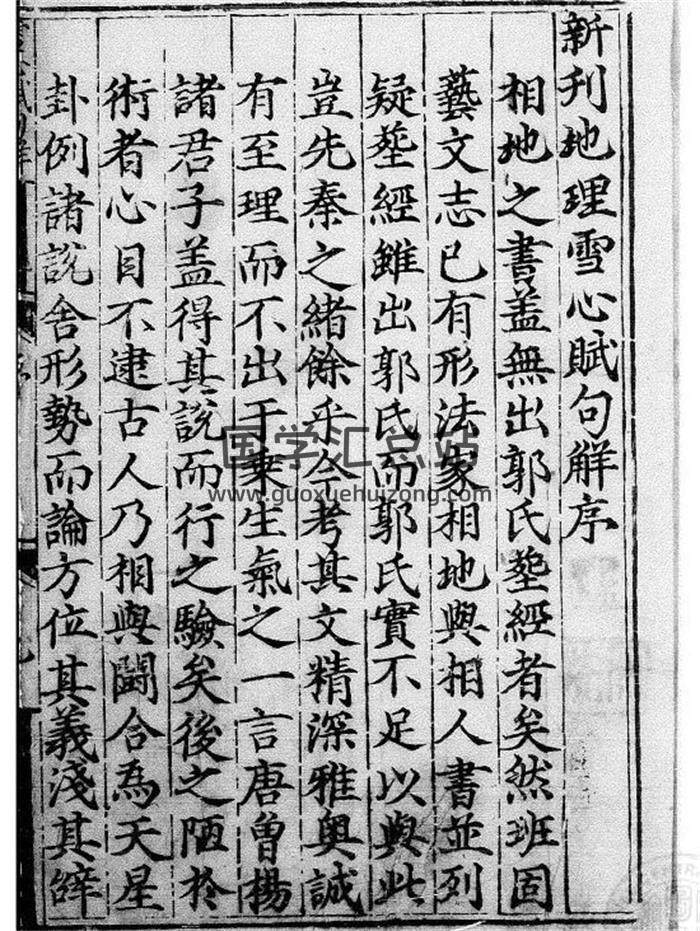 新刊地理雪心賦句解序
相地之書盖無出郭氏塟經者矣然班固
藝文志已有形法家相地與相人書並列
疑塟經雖出郭氏而郭氏實不足以與此
豈先秦之緒餘乎今考其文精深雅奥誠
有至理而不出于乗生氣之一言唐曾楊
諸君子盖得其説而行之驗矣後之陋於
術者心目不逮古人乃相與闘合為天星
卦例諸説舍形勢而論方位其義淺其辝
国学汇总站
www.guoxuehuizong.com